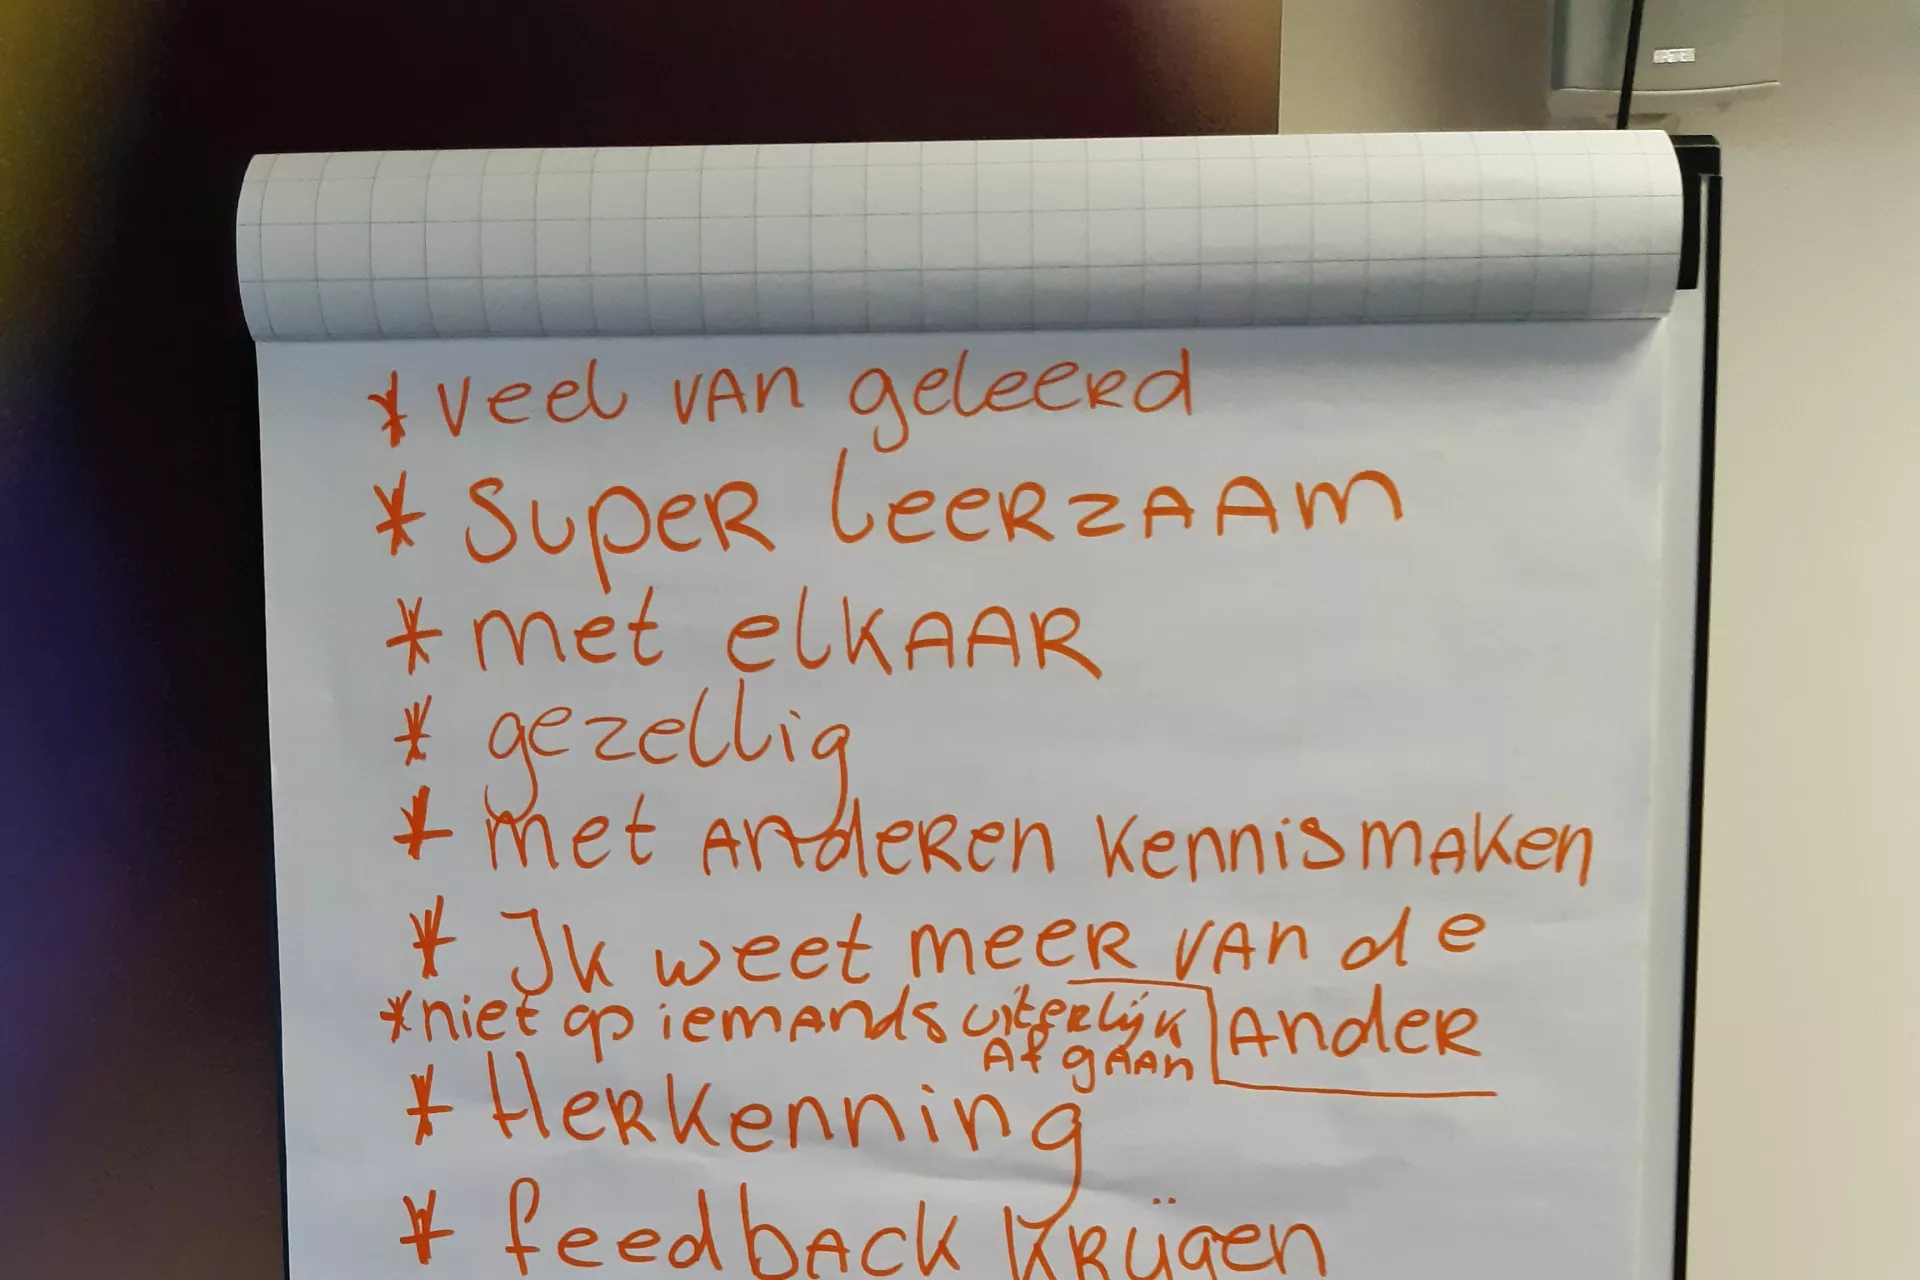 * veel van geleerd
* Super leerzaam
* met elkaar
* gezellig
* met anderen kennismaken
* Ik weet meer van de
ander
* niet op iemands uiterlijk
afgaan
* Herkenning
* feedback krijgen